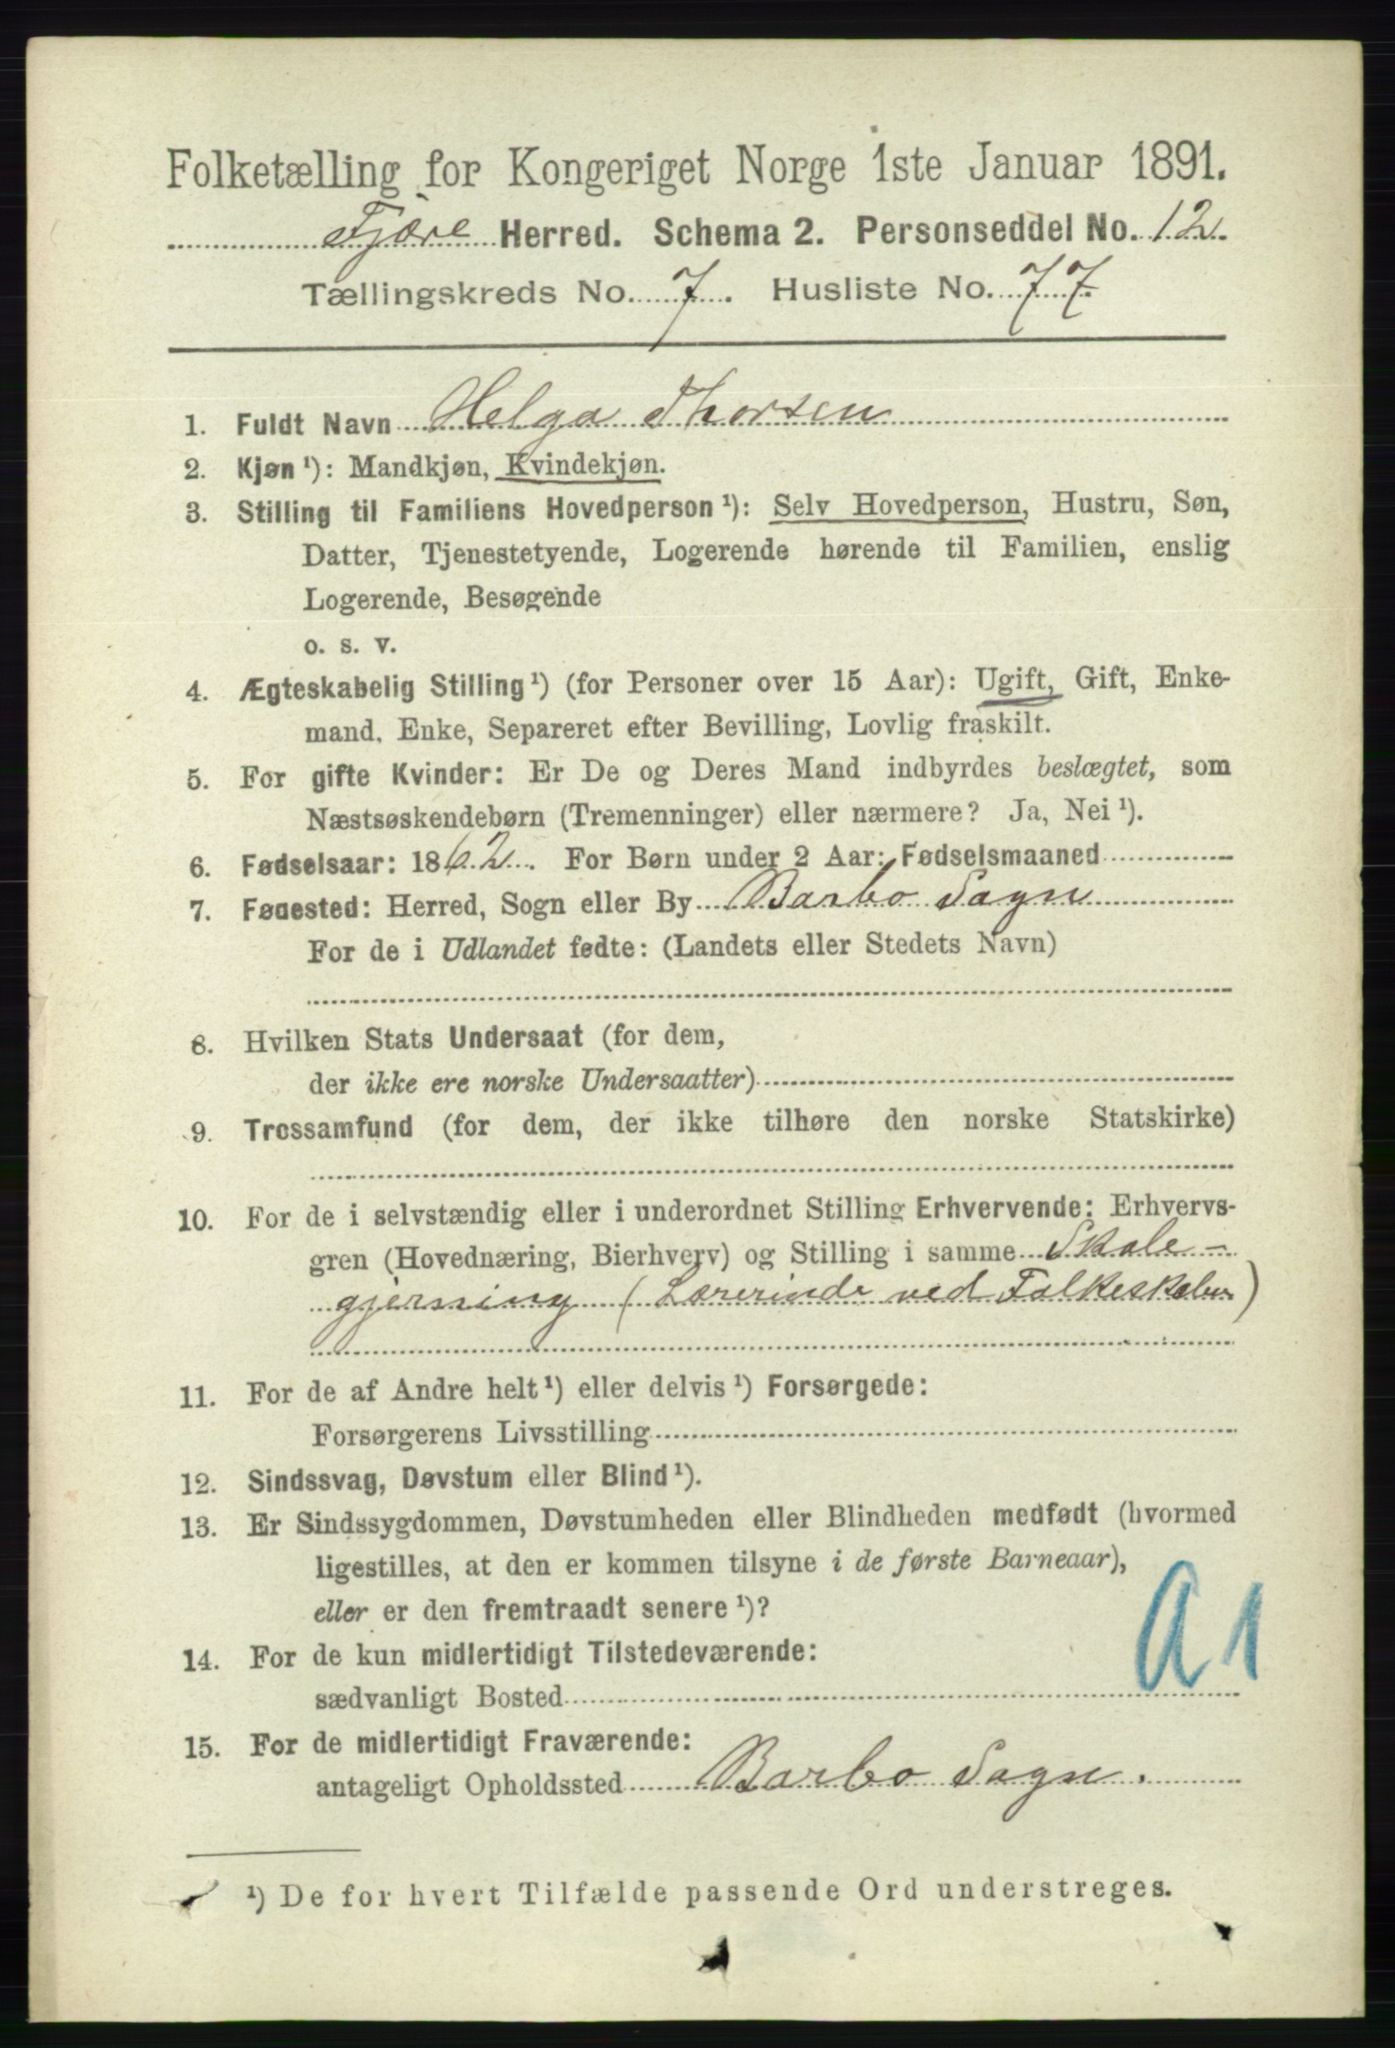 Folketælling for Kongeriget Norge 1ste Januar 1891.
Fjære Herred. Schema 2. Personseddel No. 12.
Tællingskreds No. 7. Husliste No. 77.
1. Fuldt Navn Helga Thorsen
2. Kjøn ¹): Mandkjøn, Kvindekjøn.
3. Stilling til Familiens Hovedperson ¹): Selv Hovedperson, Hustru, Søn,
Datter, Tjenestetyende, Logerende hørende til Familien, enslig
Logerende, Besøgende
o. s. v.
4. Ægteskabelig Stilling ¹) (for Personer over 15 Aar): Ugift, Gift, Enke-
mand, Enke, Separeret efter Bevilling, Lovlig fraskilt.
5. For gifte Kvinder: Er De og Deres Mand indbyrdes beslægtet, som
Næstsøskendebørn (Tremenninger) eller nærmere? Ja, Nei ¹).
6. Fødselsaar: 1862. For Børn under 2 Aar: Fødselsmaaned
7. Fødested: Herred, Sogn eller By Barbo Sogn
For de i Udlandet fødte: (Landets eller Stedets Navn)
8. Hvilken Stats Undersaat (for dem,
der ikke ere norske Undersaatter)
9. Trossamfund (for dem, der ikke tilhøre den norske Statskirke)
10. For de i selvstændig eller i underordnet Stilling Erhvervende: Erhvervs-
gren (Hovednæring, Bierhverv) og Stilling i samme Skole-
gjerning (Lærerinde ved Folkeskolen)
11. For de af Andre helt ¹) eller delvis ¹) Forsørgede:
Forsørgerens Livsstilling
12. Sindssvag, Døvstum eller Blind ¹).
13. Er Sindssygdommen, Døvstumheden eller Blindheden medfødt (hvormed
ligestilles, at den er kommen tilsyne i de første Barneaar),
eller er den fremtraadt senere ¹)?
A1
14. For de kun midlertidigt Tilstedeværende:
sædvanligt Bosted
15. For de midlertidigt Fraværende:
antageligt Opholdssted Barbo Sogn.
¹) De for hvert Tilfælde passende Ord understreges.